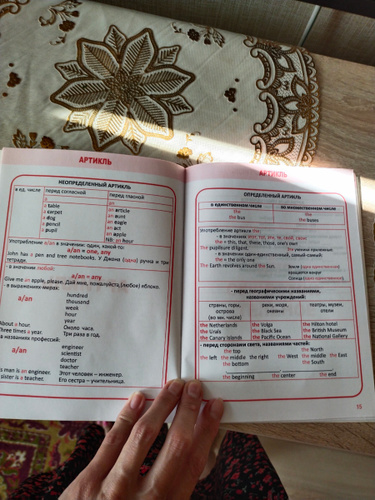 АРТИКЛЬ
НЕОПРЕДЕЛЕННЫЙ АРТИКЛЬ
в ед. числе
перед согласной
перед гласной
a
an
a table
an article
a carpet
an aunt
a dog
an eagle
a pencil
an act
a pupil
an apple
NB: an hour
Употребление a/an в значении: один, какой-то:
a/an = one, any
John has a pen and tree notebooks. У Джона (одна) ручка и три
тетради.
- в значении любой:
a/an = any
Give me an apple, please. Дай мне, пожалуйста, (любое) яблоко.
- в выражениях меры:
a/an
hundred
thousand
week
hour
year
About a hour
Около часа.
Three times a year.
Три раза в год.
в названиях профессий:
a/an
engineer
scientist
doctor
teacher
man is an engineer.
Этот человек – инженер.
sister is a teacher.
Его сестра – учительница.
АРТИКЛЬ
ОПРЕДЕЛЕННЫЙ АРТИКЛЬ
в единственном числе
во множественном числе
the
the
the bus
the buses
Употребление артикля the:
- в значении этот, тот, эти, те, такой, такие:
the = this, that, these, those, one's own
The pupils are diligent.
Эти ученики прилежные.
- в значении один-единственный, самый-самый:
the = the only one
The Earth revolves around the Sun.
Земля (одна-единственная)
вращается вокруг
Солнца (одного-единственного)
- перед географическими названиями,
названиями учреждений:
страны, горы,
острова
(во мн. числе)
реки, моря,
океаны
театры, музеи,
отели
the Netherlands
the Volga
the Hilton hotel
the Urals
the Black Sea
the British Museum
the Canary Islands
the Pacific Ocean
the National Gallery
- перед сторонами света, названиями частей:
the top
North
the left
the middle
the right
the West
the middle
East
the bottom
South
the beginning
the center
the end
15